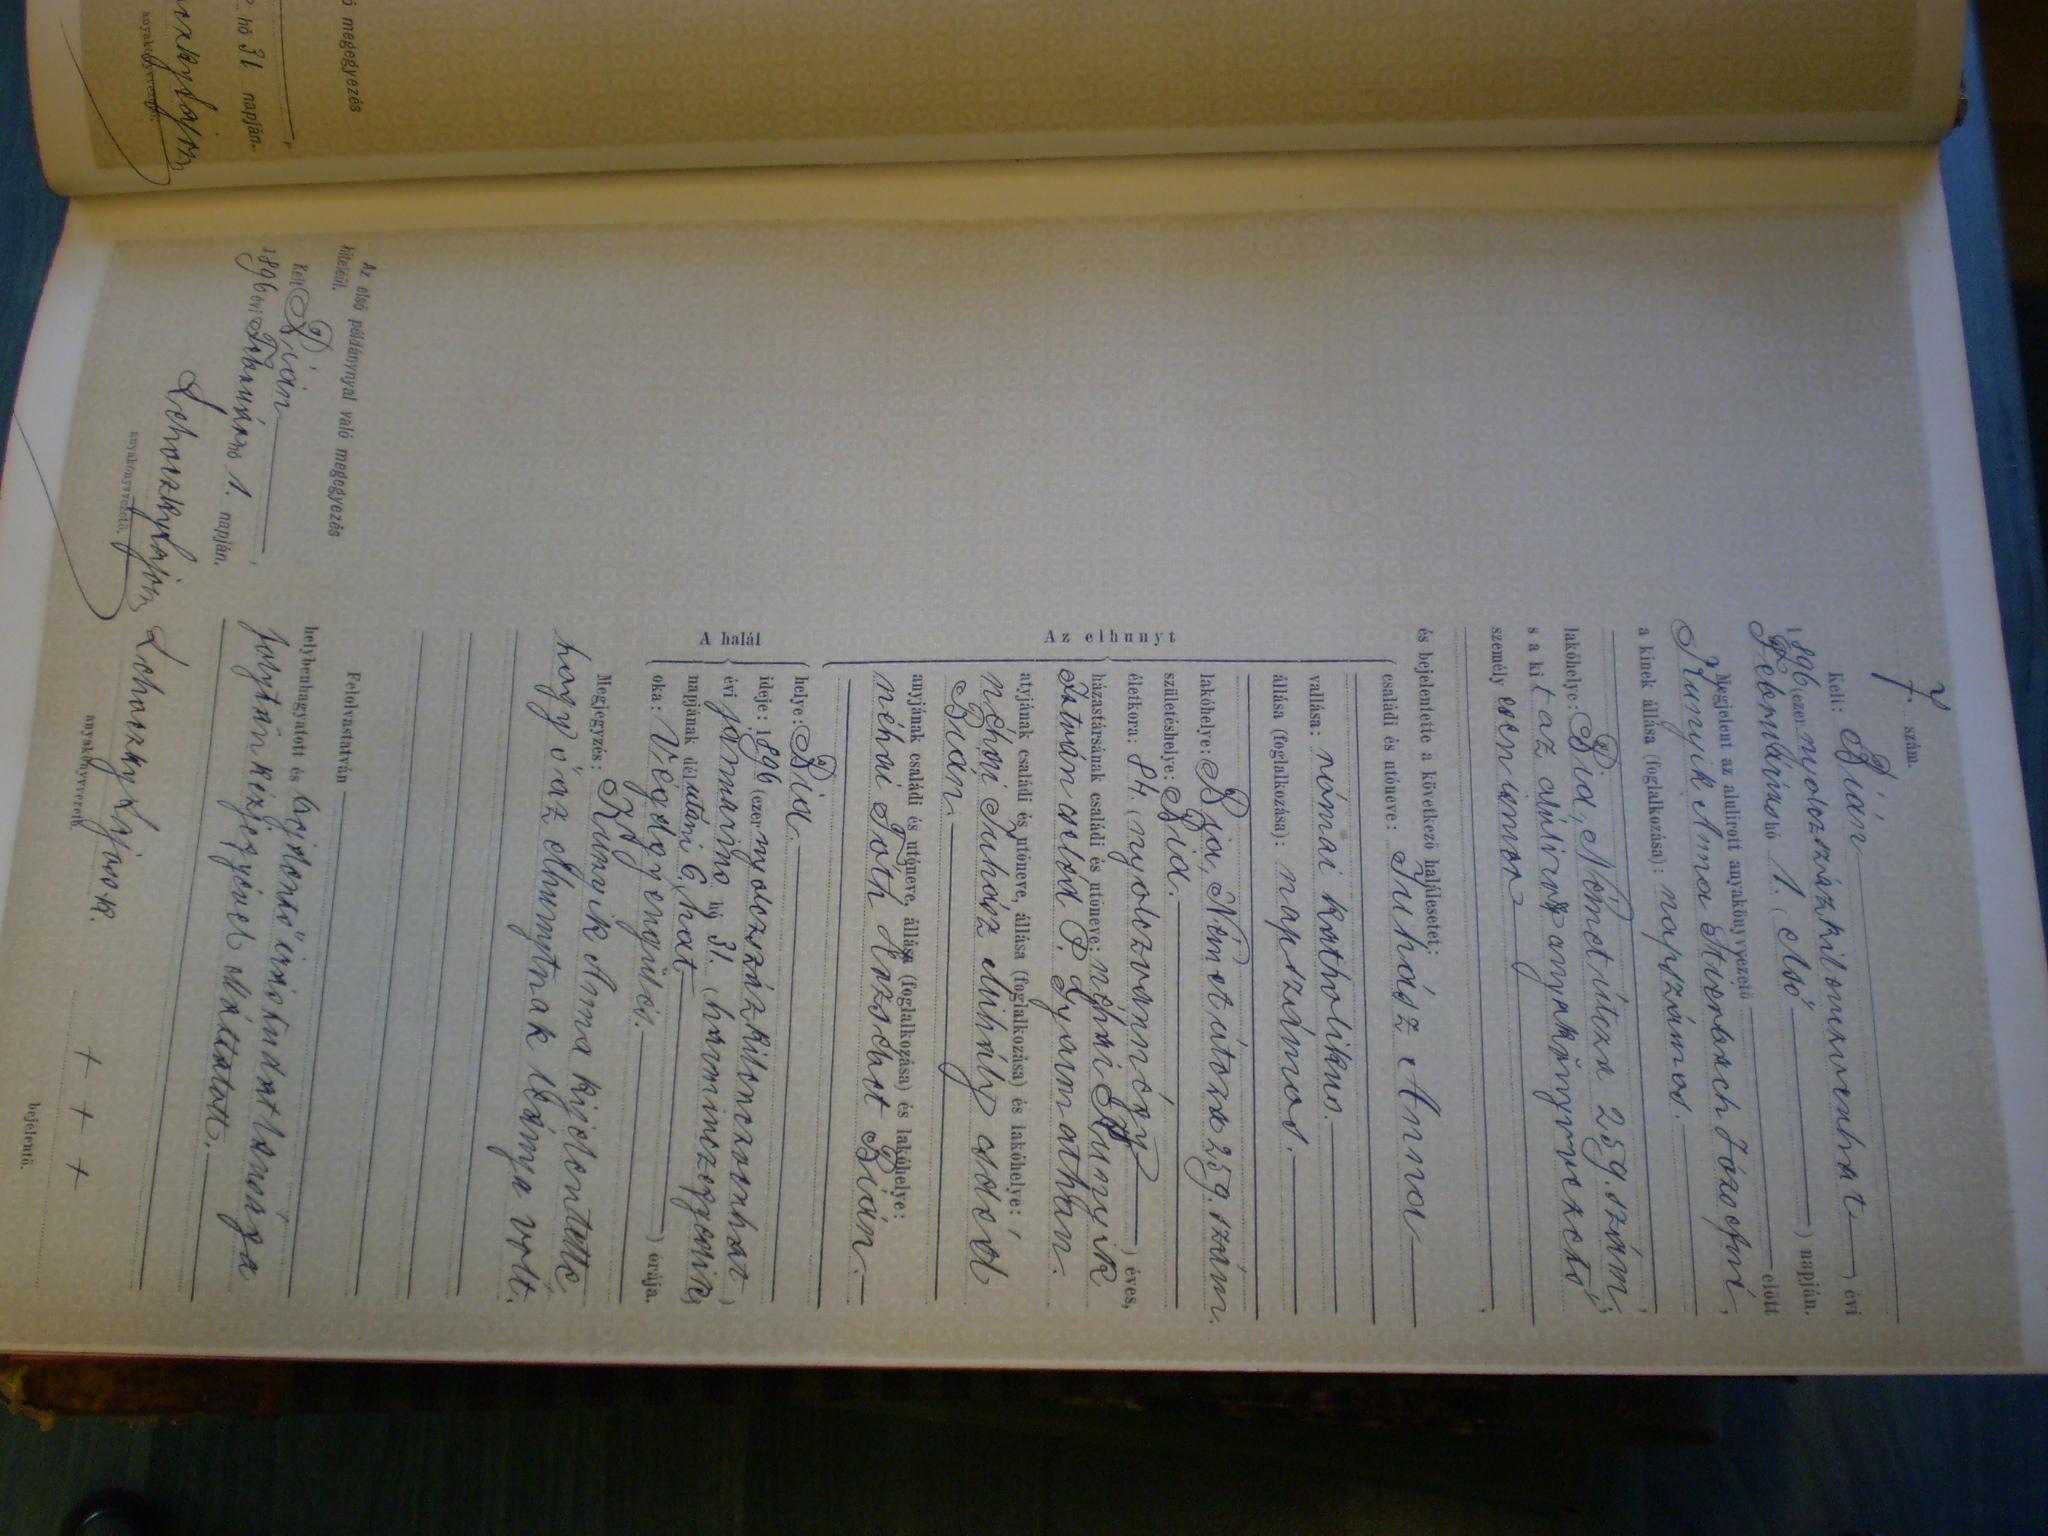 ó megegyezés
hó 31. napján.
anyakönyvvezető.
7. szám.
Kelt: Bián
1896 (ezer nyolczszázkilenczvenhat) évi
Februárius hó 1. (első) napján.
Megjelent az alulirott anyakönyvvezető előtt
Kunyik Anna Józsefné,
a kinek állása (foglalkozása): napszámos.
lakóhelye: Bia, Német útcza 259. szám,
s a kit az alulirott anyakönyvvezető
személyesen ismer
és bejelentette a következő halálesetet:
Az elhunyt
családi és utóneve: Juhász Anna
vallása: római katholikus.
állása (foglalkozása): napszámos.
lakóhelye: Bia, Német útcza 259. szám.
születéshelye: Bia.
életkora: 84. (nyolczvannégy) éves,
házastársának családi és utóneve: néhai Kunyik
István volt P. Gyarmathán.
atyjának családi és utóneve, állása (foglalkozása) és lakóhelye:
néhai Juhász Mihály volt
Bián.
anyjának családi és utóneve, állása (foglalkozása) és lakóhelye:
néhai Tóth Erzsébet Bián.
A halál
helye: Bia.
ideje: 1896 (ezer nyolczszázkilenczvenhat)
évi januárius hó 31. (harminczegyedik)
napjának délutáni 6 (hat) órája.
oka: Végelgyengülés.
Megjegyzés: Kunyik Anna kijelentette
hogy ő az elhunytnak leánya volt.
Felolvastatván
helybenhagyatott és bejelentő írástudatlansága
folytán kézjegyével elláttatott.
Lehoczky Lajos k.
anyakönyvvezető.
+ + +
bejelentő.
Az első példánynyal való megegyezés
hiteléül.
Kelt Bián,
1896 évi Februárius hó 1. napján.
Lehoczky Lajos k.
anyakönyvvezető.